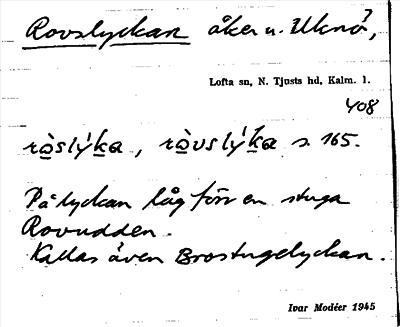 Rovslyckan åker u. Uknö?,
Lofta sn, N. Tjusts hd, Kalm. l.
408
ròslýka, ròvslýka s. 165.
På lyckan låg förr en stuga
Rovudden.
Kallas även Brostugelyckan.
Ivar Modéer 1945